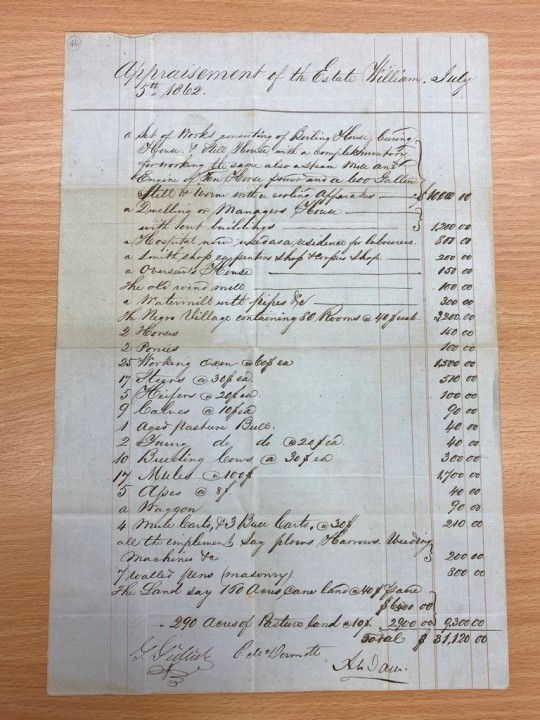 Appraisement of the Estate William. July
5th 1862.
a Set of Works consisting of Boiling House, Curing
House & Still House with a complete inventory
for working the same also a steam Mill and
Engine of Ten Horse power and a 600 Gallon
Still & Worm with a cooling Apparatus — $ 10,000 00
a Dwelling or Managers House —
with out buildings — 1,200 00
a Hospital now used as a residence for labourers. 800 00
a Smith shop carpenters Shop & coopers Shop. — 200 00
a Overseer's House — 150 00
The old wind mill — 100 00
a Watermill with pipes &c — 300 00
The Negro Village containing 80 Rooms @ 40$ each 3,200 00
2 Horses 100
2 Ponies 100 00
25 Working Oxen @ 60$ ea 1,500 00
17 Steers @ 30$ ea. 510 00
5 Heifers @ 20$ ea. 100 00
9 Calves @ 10$ ea 90 00
1 Aged Pasture Bull. 40 00
2 Young do do @ 20$ ea. 40 00
10 Breeding Cows @ 30$ ea 300 00
17 Mules @ 100$ 1,700 00
5 Asses @ 8$ 40 00
a Waggon 90 00
4 Mule Carts, & 3 Bull Carts, @ 30$ 210 00
all the implements Say plows Harrows Weeding
Machines &c 200 00
7 walled pens (masonry) 800 00
The Land say 160 Acres cane land @ 40$ acre
$ 6400 00
" 290 Acres of Pasture land @ 10$. 2900 00 9,300 00
Total $ 31,120 00